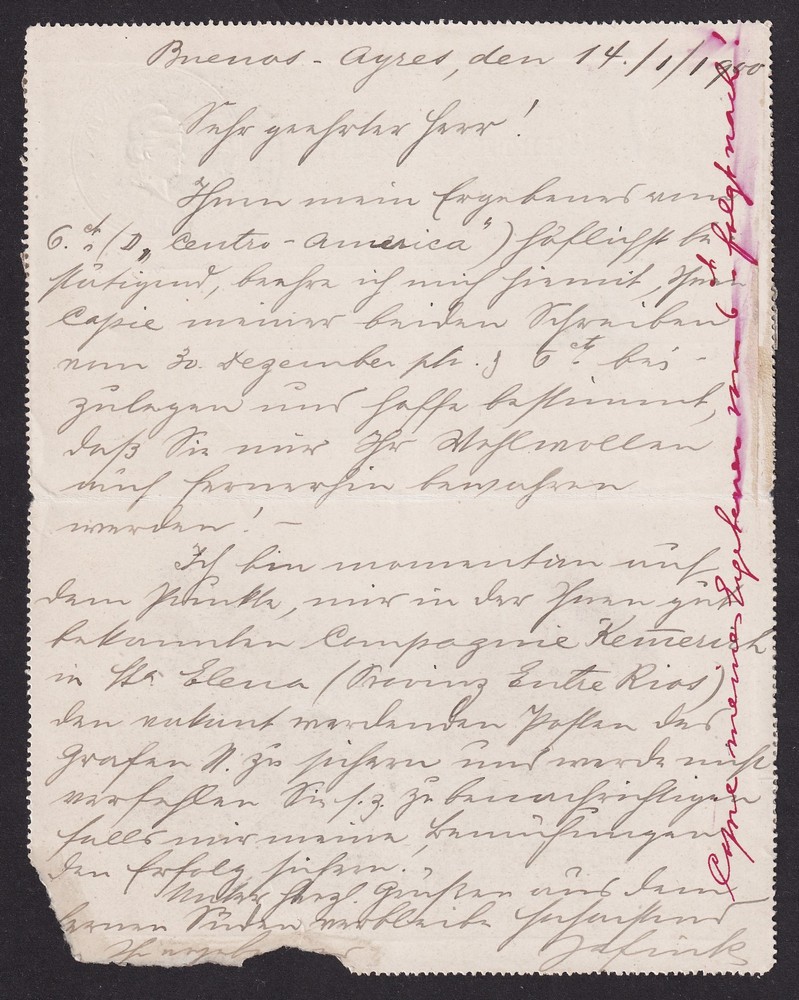 Buenos-Ayres, den 14./1/1900
Sehr geehrter Herr!
Ihnen mein Ergebenes vom
6. ct. (D. „Centro-America") höflichst be-
stätigend, beehre ich mich hiemit, Ihnen
Copie meiner beiden Schreiben
vom 30. Dezember 6 ct. bei-
zulegen und hoffe bestimmt,
daß Sie mir Ihr Wohlwollen
auch fernerhin bewahren
werden! –
Ich bin momentan auf
dem Punkte, mir in der Ihnen gut
bekannten Compagnie Kem̄erich
in Sta Elena (Provinz Entre Rios)
den vakant werdenden Posten des
Grafen N. zu sichern und werde nicht
verfehlen Sie s. z. zu benachrichtigen
falls mir meine Bemühungen
den Erfolg sichern.
Unter herzl. Grüßen aus dem
fernen Süden verbleibe hochachtend
Ihr
Copie meines Ergebenen vom 6. ct. folgt nach!